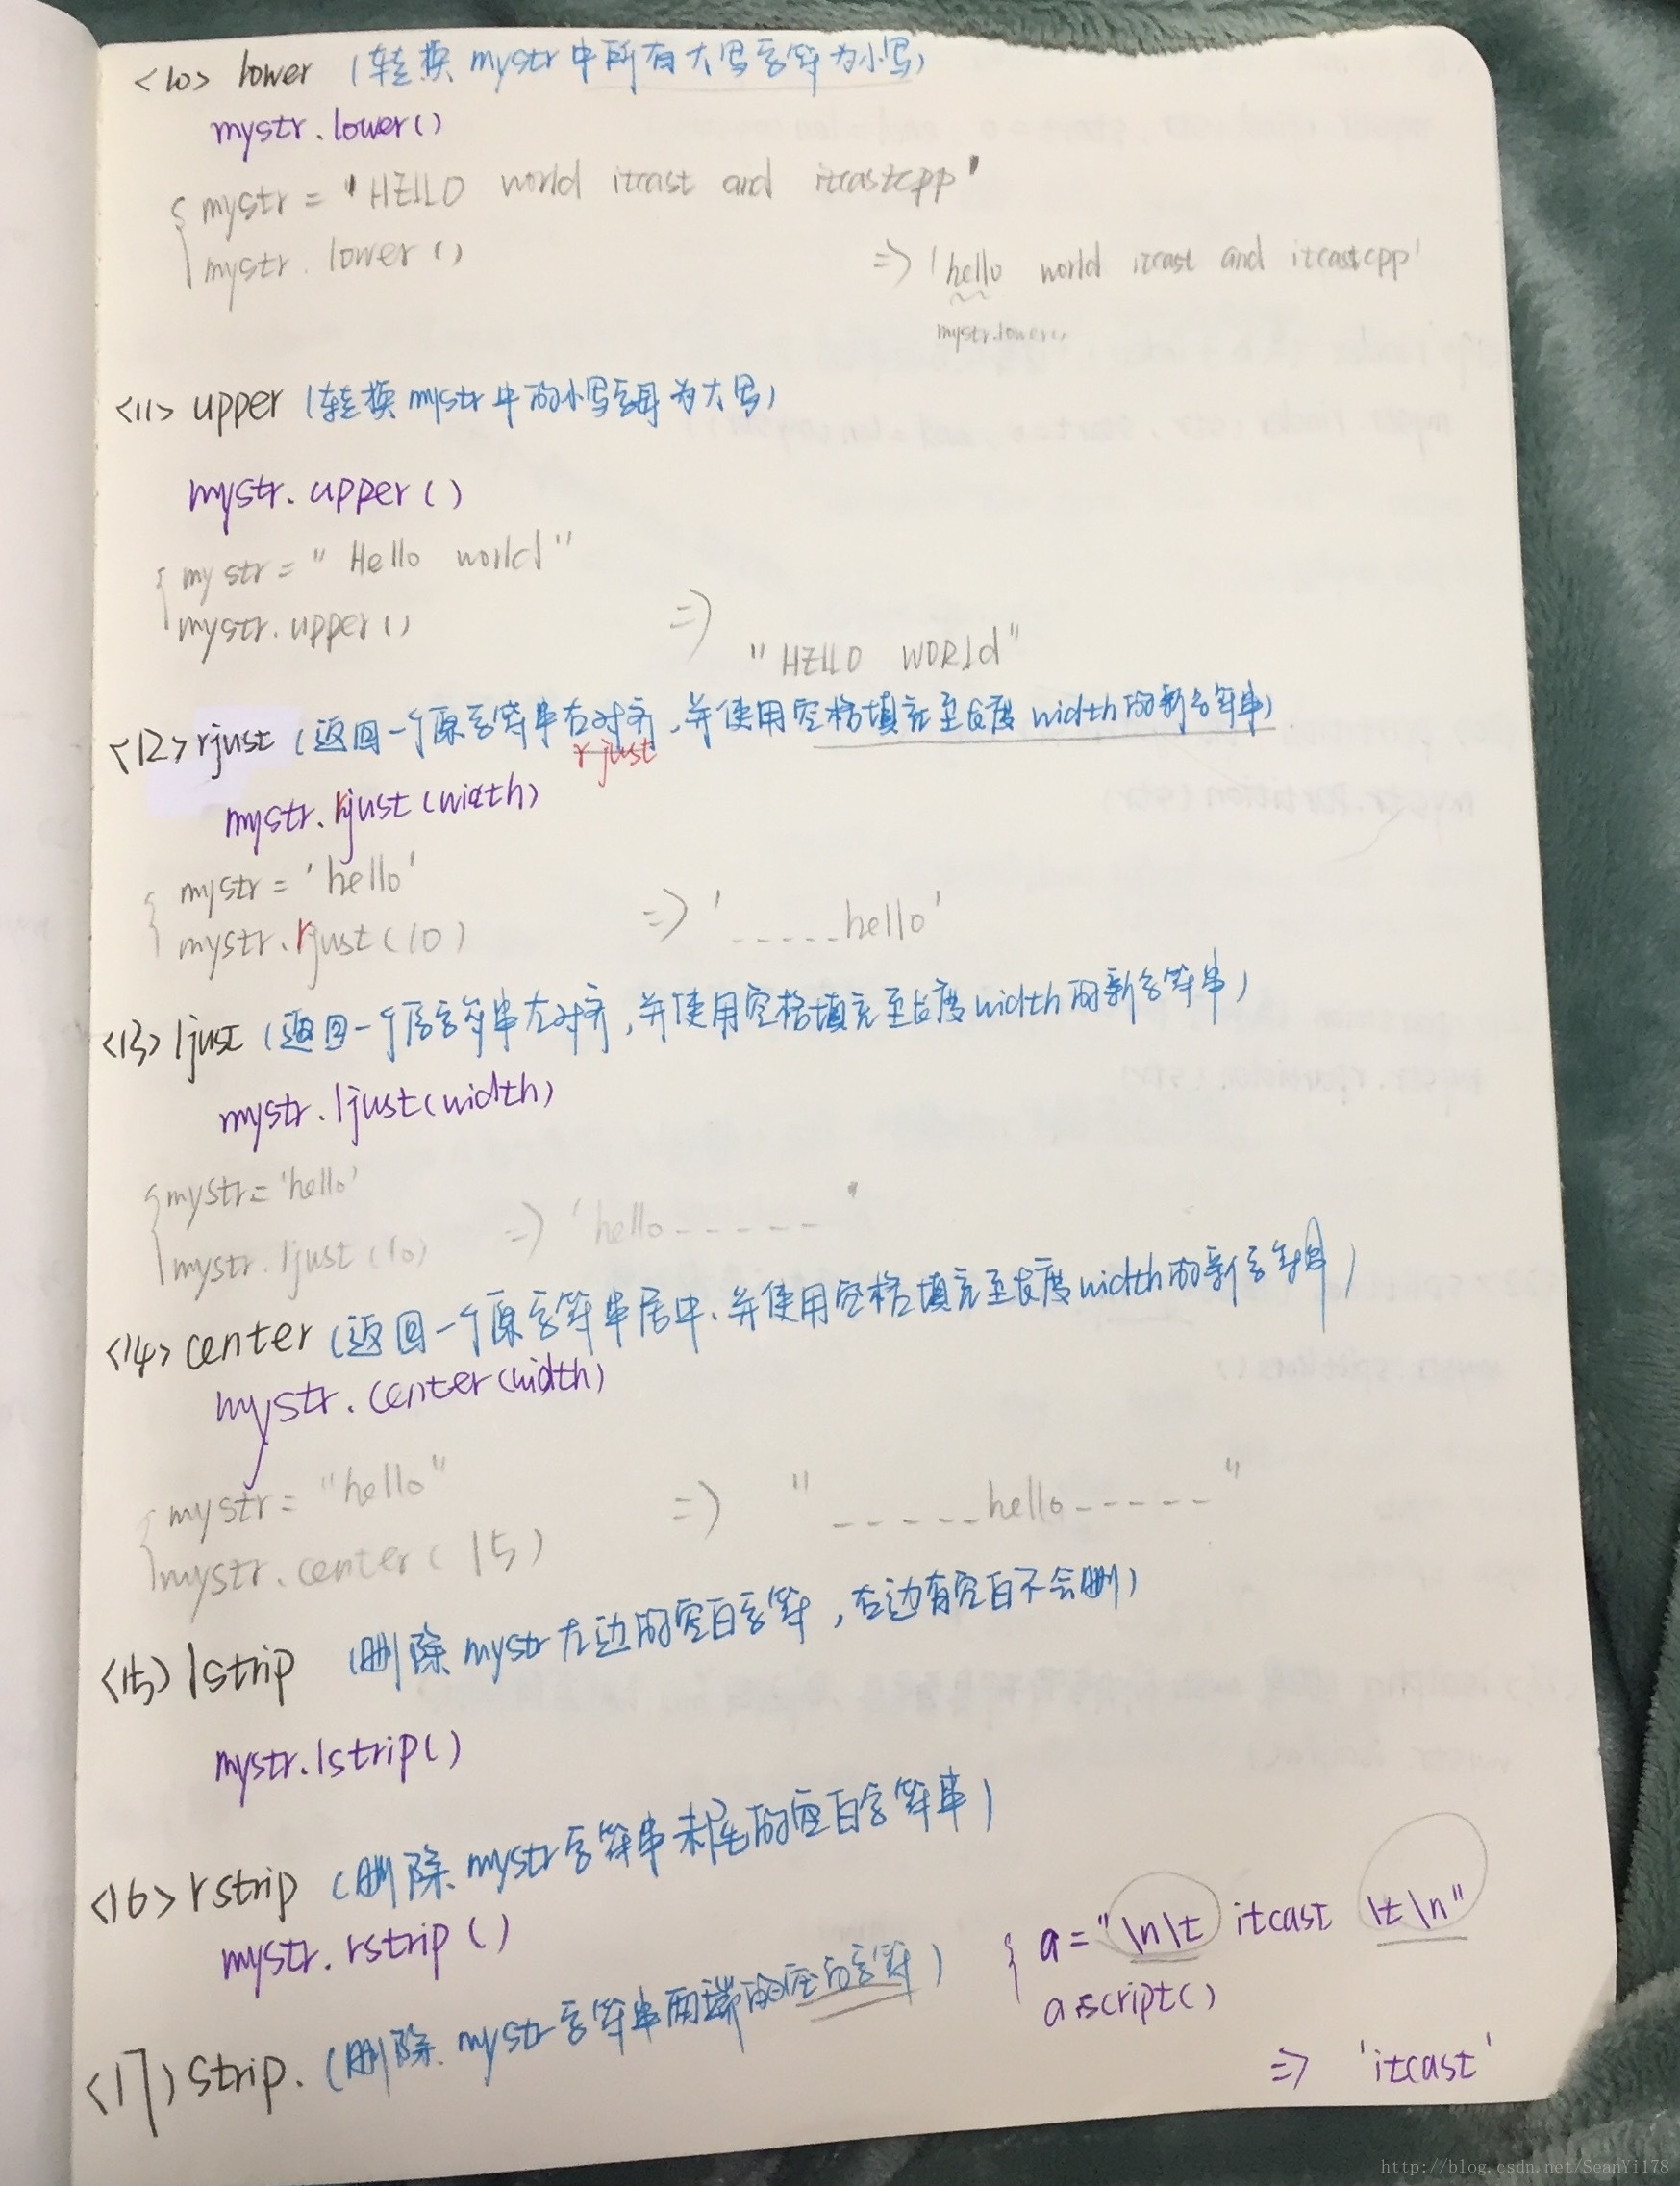 <10> lower (转换 mystr 中所有大写字符为小写)
mystr.lower()
mystr = "HELLO world itcast and itcastcpp"
mystr.lower()
=> 'hello world itcast and itcastcpp'
mystr.lower()
<11> upper (转换 mystr 中的小写字母为大写)
mystr.upper()
mystr = "Hello world"
mystr.upper()
=>
"HELLO WORLd"
<12> rjust (返回一个原字符串右对齐,并使用空格填充至长度 width 的新字符串)
rjust
mystr.rjust(width)
mystr = 'hello'
mystr.rjust(10) => '_____hello'
<13> ljust (返回一个原字符串左对齐,并使用空格填充至长度 width 的新字符串)
mystr.ljust(width)
mystr = 'hello'
mystr.ljust(10) => 'hello-----'
<14> center (返回一个原字符串居中,并使用空格填充至长度 width 的新字符串)
mystr.center(width)
mystr = "hello"
mystr.center(15) => "_____hello-----"
<15> lstrip (删除 mystr 左边的空白字符,右边有空白不会删)
mystr.lstrip()
<16> rstrip (删除 mystr 字符串末尾的空白字符串)
mystr.rstrip()
a = "\n\t itcast \t\n"
a.script()
=> 'itcast'
<17> strip. (删除 mystr 字符串两端的空白字符)
http://blog.csdn.net/SeanYi178